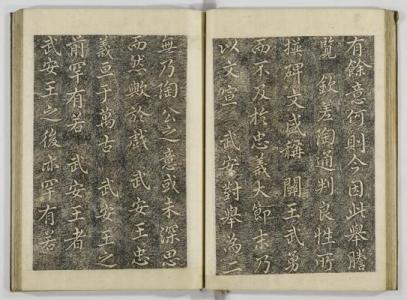 有餘意何則今因此舉謄
覽欽差陶通判良性所
撰碑文咸稱關王武勇
而不及於忠義大節末乃
以文宣武安對舉為二
無乃陶公之意或未深思
而然歟於戲武安王忠
義亘于萬古武安王之
前罕有若武安王者
武安王之後亦罕有若